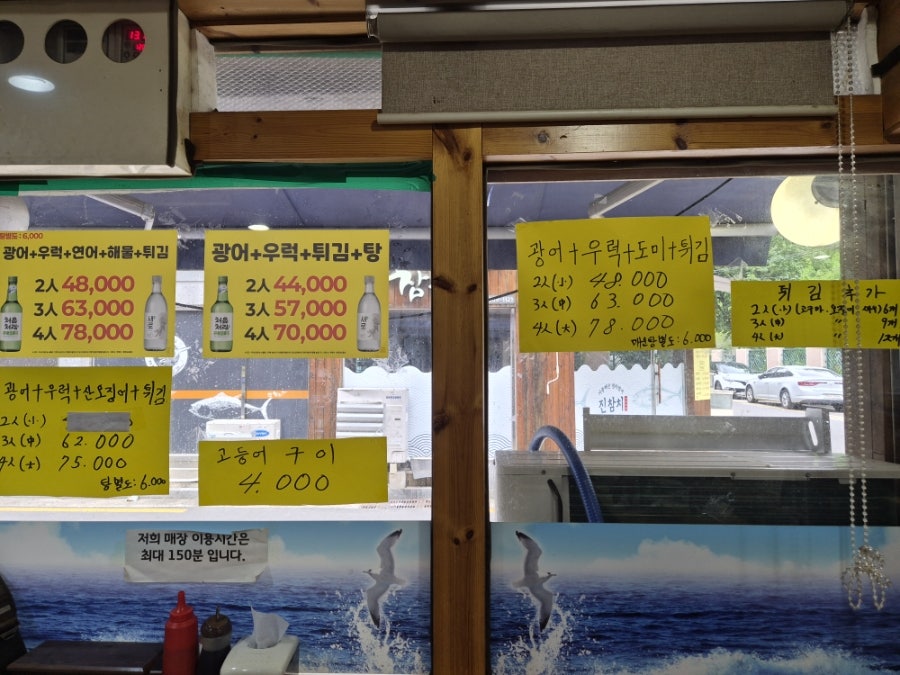 탕별도: 6,000
광어+우럭+연어+해물+튀김
2人 48,000
3人 63,000
4人 78,000
광어+우럭+튀김+탕
2人 44,000
3人 57,000
4人 70,000
처음처럼
새로
광어+우럭+산오징어+튀김
2人(小)
3人(中) 62.000
4人(大) 75.000
탕별도: 6.000
고등어 구이
4.000
광어+우럭+도미+튀김
2人(小) 48.000
3人(中) 63.000
4人(大) 78.000
매운탕별도: 6.000
튀김추가
2人(小)
3人(中)
4人(大)
진참치
저희 매장 이용시간은
최대 150분 입니다.